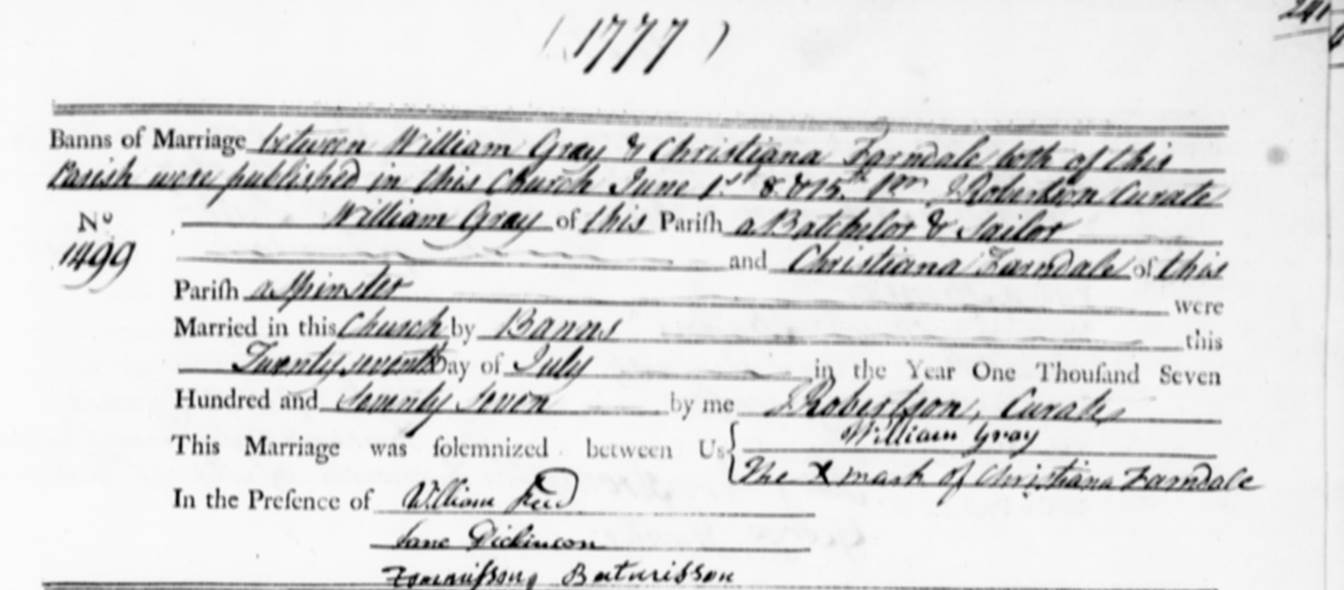 (1777)
241
Banns of Marriage between William Gray & Christiana Farndale both of this
Parish were published in this Church June 1st 8. & 15th Pr J Robertson Curate
No
1499
William Gray of this Parish a Batchelor & Sailor
and Christiana Farndale of this
Parish a Spinster were
Married in this Church by Banns this
Twenty seventh Day of July in the Year One Thousand Seven
Hundred and Seventy Seven by me J Robertson, Curate
This Marriage was solemnized between Us William Gray
The X mark of Christiana Farndale
In the Presence of William
Jane Dickinson